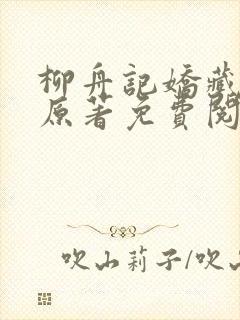 柳舟記嬌藏
原著免費閱
吹山莉子/吹山